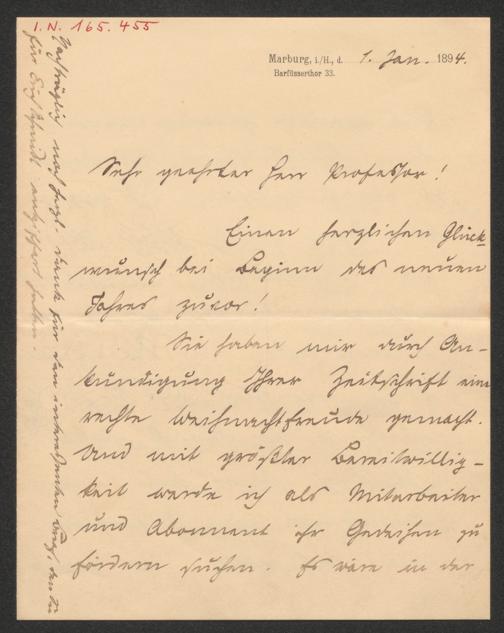 I.N. 165.455
Marburg, i./H., d. 1. Jan. 1894.
Barfüsserthor 33.
Sehr geehrter Herr Professor!
Einen herzlichen Glück-
wunsch bei Beginn des neuen
Jahres zuvor!
Sie haben mir durch An-
kündigung Ihrer Zeitschrift eine
rechte Weihnachtfreude gemacht.
Und mit größter Bereitwillig-
keit werde ich als Mitarbeiter
und Abonnent ihr Gedeihen zu
fördern suchen. Es wäre in der
Nachträglich noch herzl. Dank für den interessanten
für Erich Schmidt